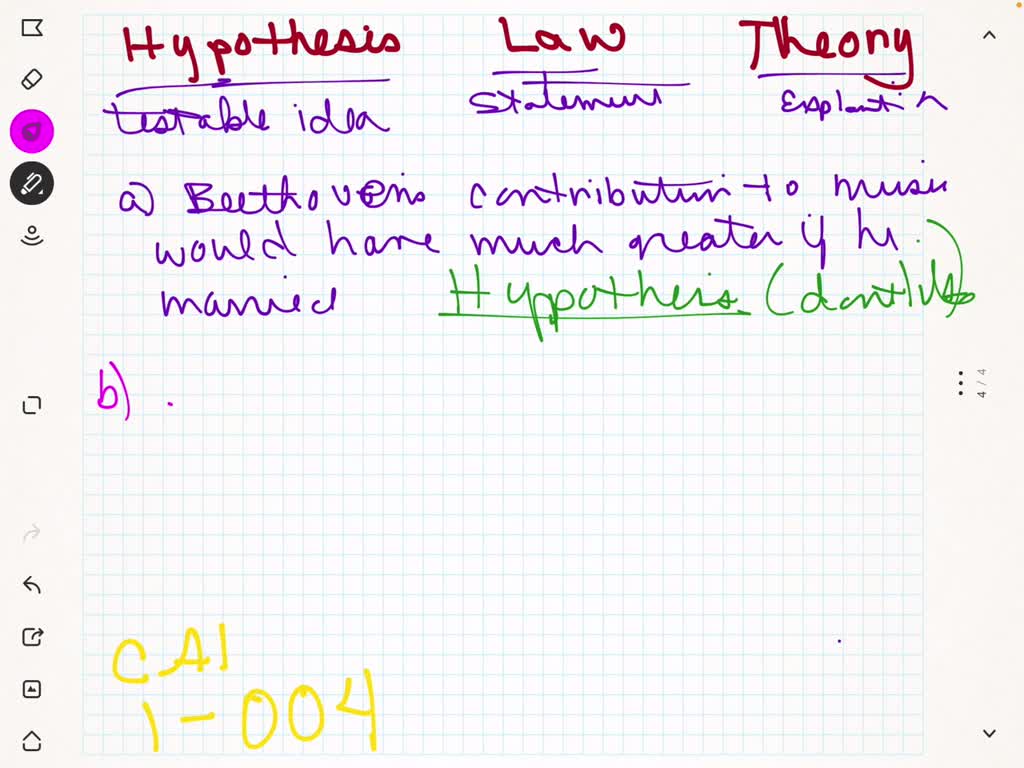 Hypothesis Law Theory
testable idea Statement Explantin
a) Beethoven's contribution to music
would have much greater if he
married Hyppothesis (
b) .
4/4
CAI
1-004